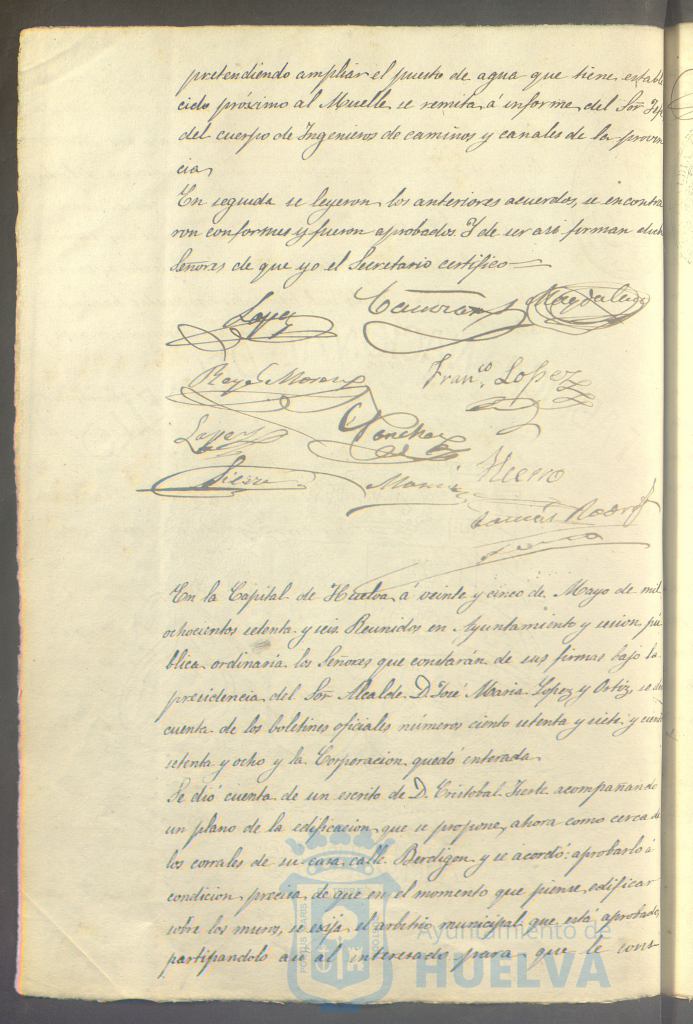 pretendiendo ampliar el puesto de agua que tiene estable
cido próximo al Muelle, se remita á informe del Sor Jefe
del cuerpo de Ingenieros de caminos y canales de la provin
cia,
En seguida se leyeron los anteriores acuerdos, se encontra
ron conformes y fueron aprobados. Y de ser asi firman dichos
Señores de que yo el Secretario certifico=
Lopez
Magdalena
Reyes Moreno
Franco. Lopez
Lopez
Sanchez
Sierra
Hierro
Tomás Rodrig
En la Capital de Huelva á veinte y cinco de Mayo de mil
ochocientos setenta y seis Reunidos en Ayuntamiento y sesion pú
blica ordinaria los Señores que constarán de sus firmas bajo la
presidencia del Sor Alcalde D. José Maria Lopez y Ortiz, se dió
cuenta de los boletines oficiales números ciento setenta y siete y ciento
setenta y ocho y la Corporacion quedó enterada
Se dió cuenta de un escrito de D. Cristobal acompañando
un plano de la edificacion que se propone, ahora como cerca de
los corrales de su casa calle Berdigon y se acordó: aprobarlo á
condicion precisa de que en el momento que piense edificar
sobre los muros, se exija el arbitrio municipal que está aprobado,
partipandolo asi al interesado para que le cons-
Ayuntamiento de
HUELVA